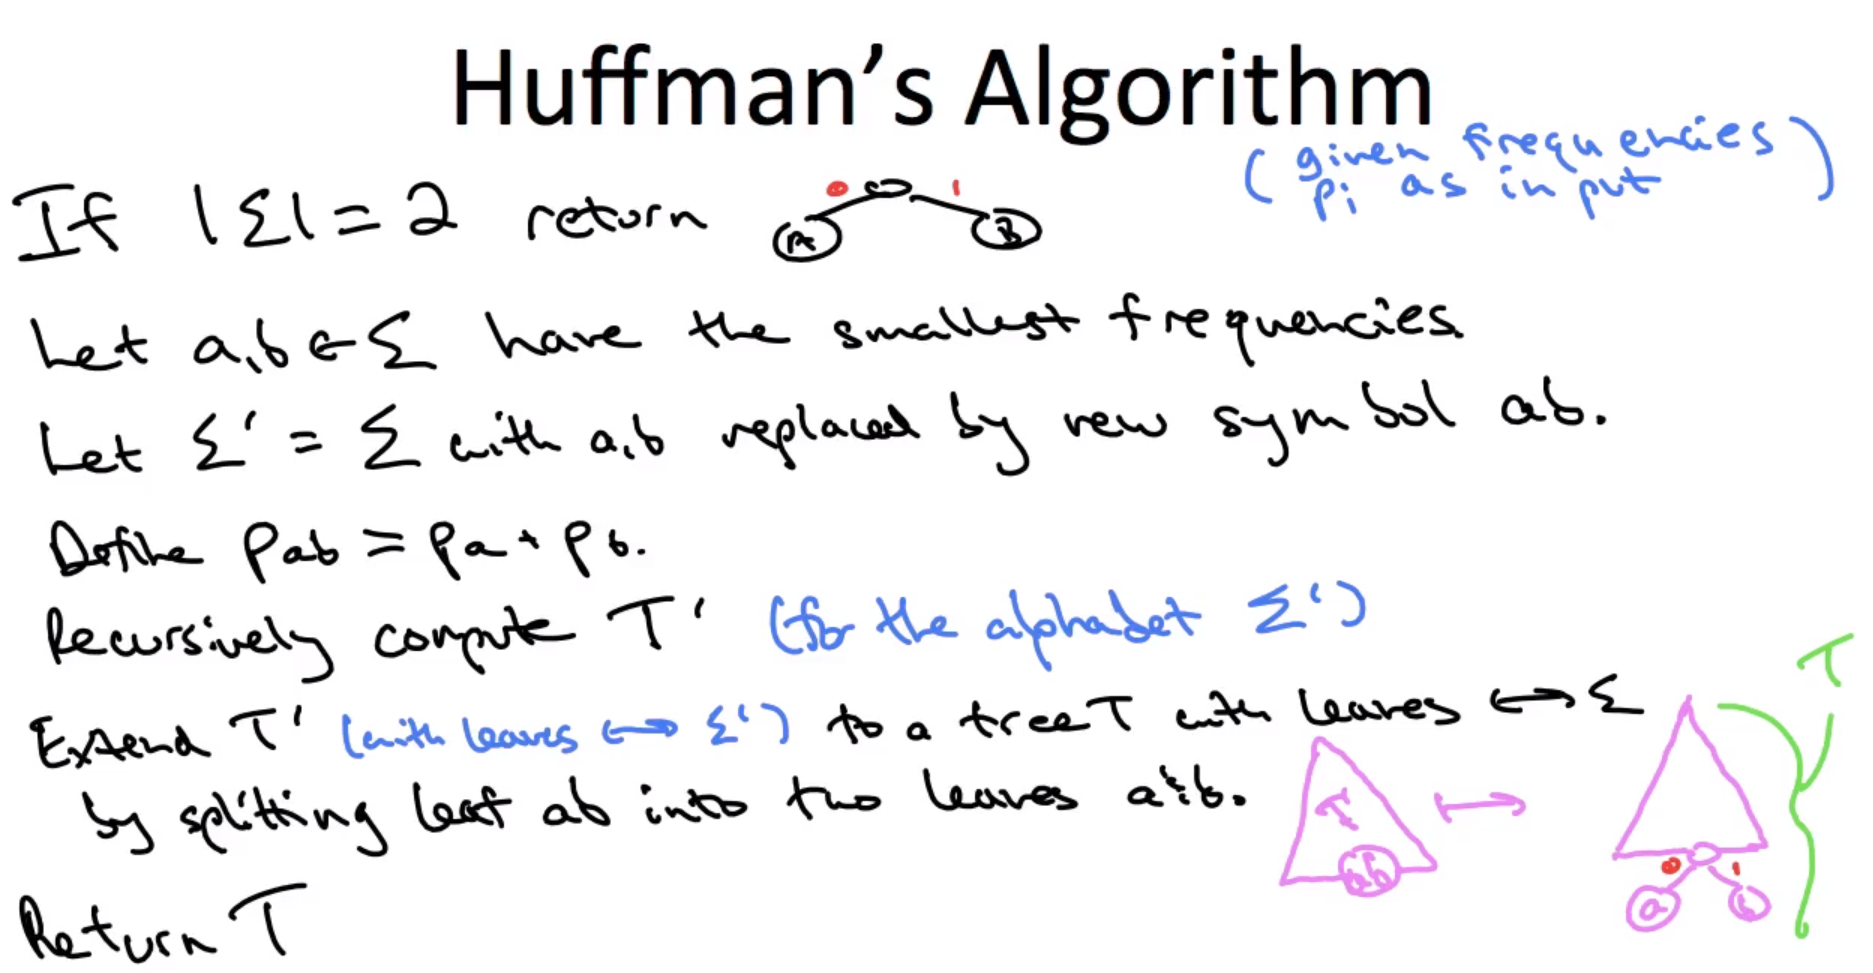 Huffman's Algorithm
(given frequencies
pi as input)
If |Σ| = 2 return
0 1
A B
Let a,b ∈ Σ have the smallest frequencies.
Let Σ' = Σ with a,b replaced by new symbol ab.
Define pab = pa + pb.
Recursively compute T' (for the alphabet Σ')
T
Extend T' (with leaves ↔ Σ') to a tree T with leaves ↔ Σ
by splitting leaf ab into two leaves a & b.
T' ↦
ab
0 1
a b
Return T